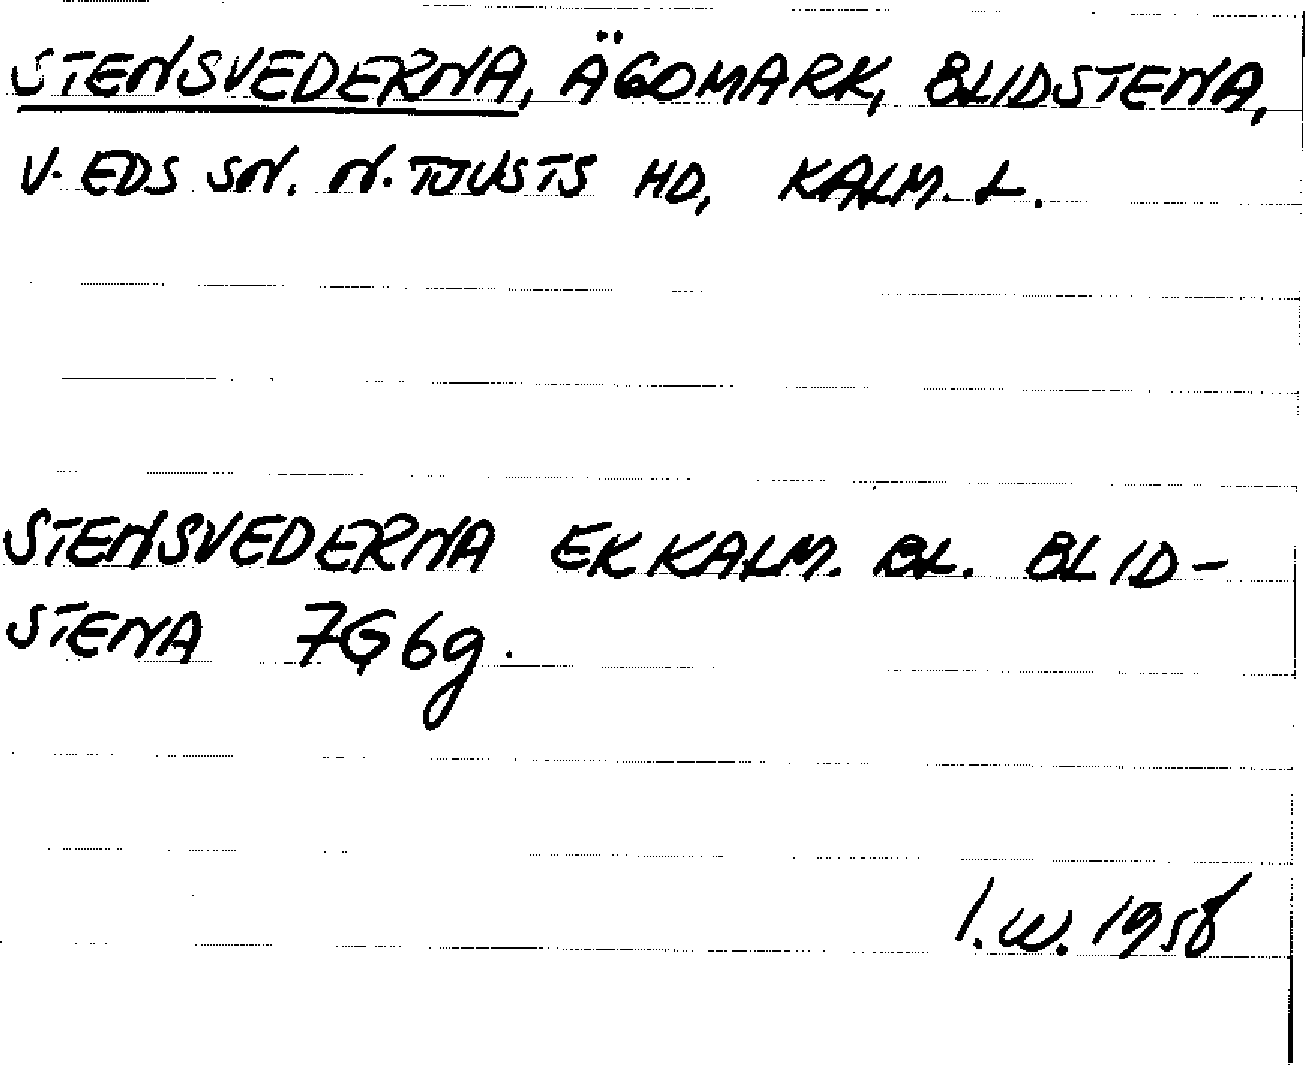 STENSVEDERNA, ÄGOMARK, BLIDSTENA,
V. EDS SN. N. TJUSTS HD, KALM. L.
STENSVEDERNA EK KALM. BL. BLID-
STENA 7G6g.
I.W. 1958